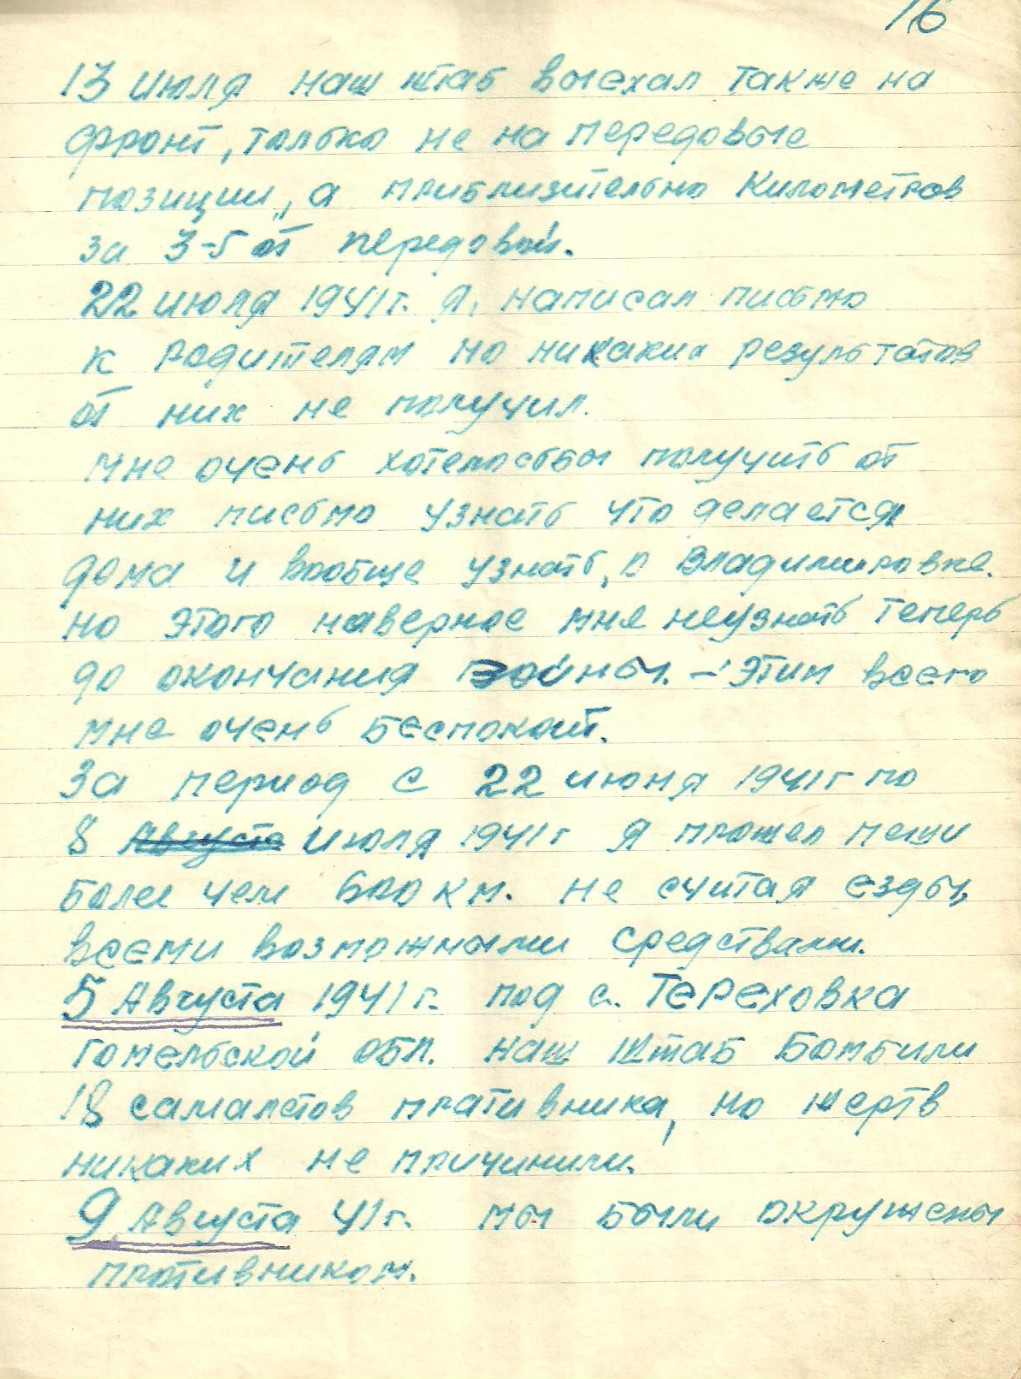 16
13 июля наш штаб выехал также на
фронт, только не на передовые
позиции, а приблизительно километров
за 3-5 от передовой.
22 июля 1941 г. я, написал письмо
к родителям но никаких результатов
от них не получил.
мне очень хотелосьбы получить от
них письмо узнать что делается
дома и вообще узнать, о Владимировке.
но этого наверное мне неузнать теперь
до окончания войны. – Этим всего
мне очень беспокоит.
За период с 22 июня 1941 г по
8 Августа июля 1941 г я прошел пеши
более чем 600 км. не считая езды,
всеми возможными средствами.
5 Августа 1941 г. под с. Тереховка
гомельской обл. наш штаб Бомбили
18 самалетов пративника, но жертв
никаких не причинили.
9 Августа 41 г. мы были окружены
противником.